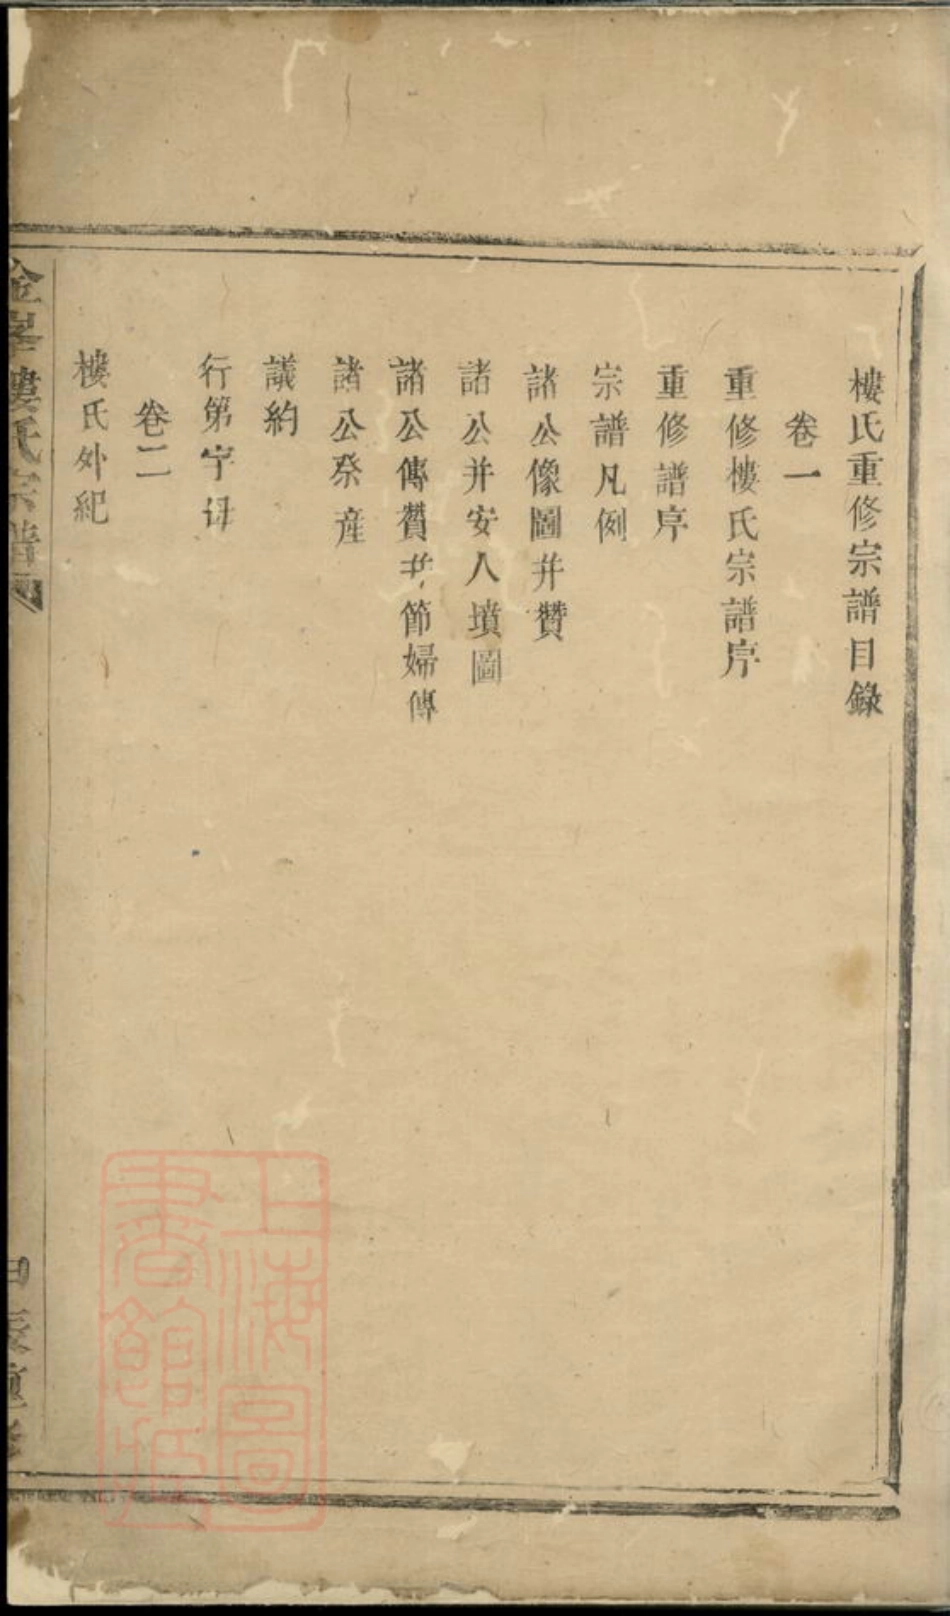 樓氏重修宗譜目錄
卷一
重修樓氏宗譜序
重修譜序
宗譜凡例
諸公像圖并贊
諸公并安人墳圖
諸公傳贊并節婦傳
諸公祭產
議約
行第字母
卷二
樓氏外紀
樓氏宗譜
上海圖書館藏